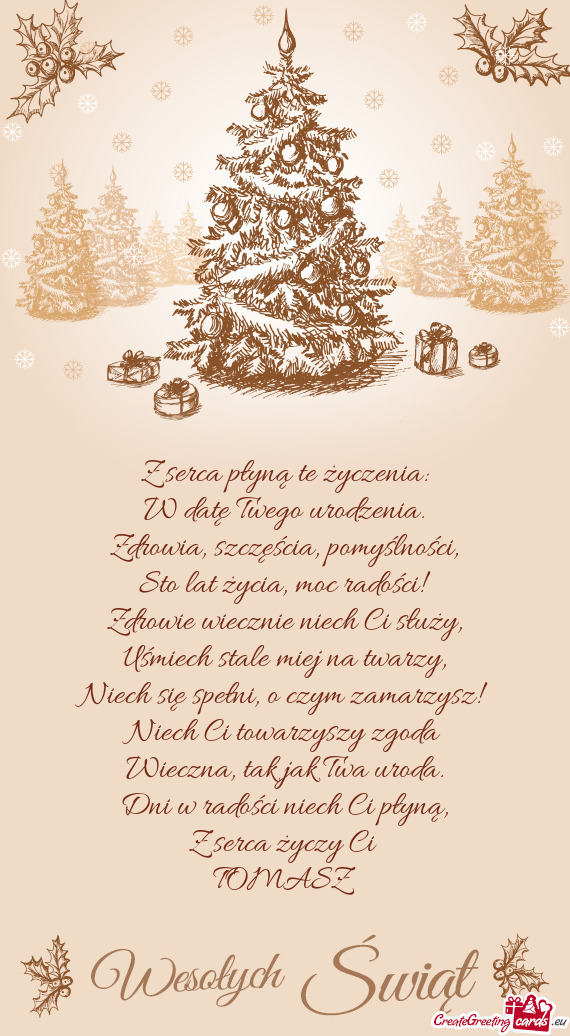 Z serca płyną te życzenia:
W datę Twego urodzenia.
Zdrowia, szczęścia, pomyślności,
Sto lat życia, moc radości!
Zdrowie wiecznie niech Ci służy,
Uśmiech stale miej na twarzy,
Niech się spełni, o czym zamarzysz!
Niech Ci towarzyszy zgoda
Wieczna, tak jak Twa uroda.
Dni w radości niech Ci płyną,
Z serca życzy Ci
TOMASZ
Wesołych Świąt
CreateGreetingcards.eu